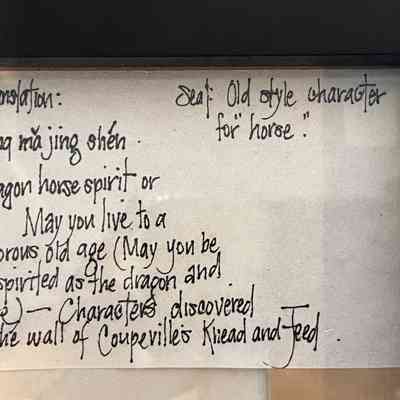 nslation:
ng mǎ jing shén.
agon horse spirit or
May you live to a
orous old age (May you be
spirited as the dragon and
e) — Characters discovered
he wall of Coupeville's Knead and Feed.
Seal: Old style character
for "horse."